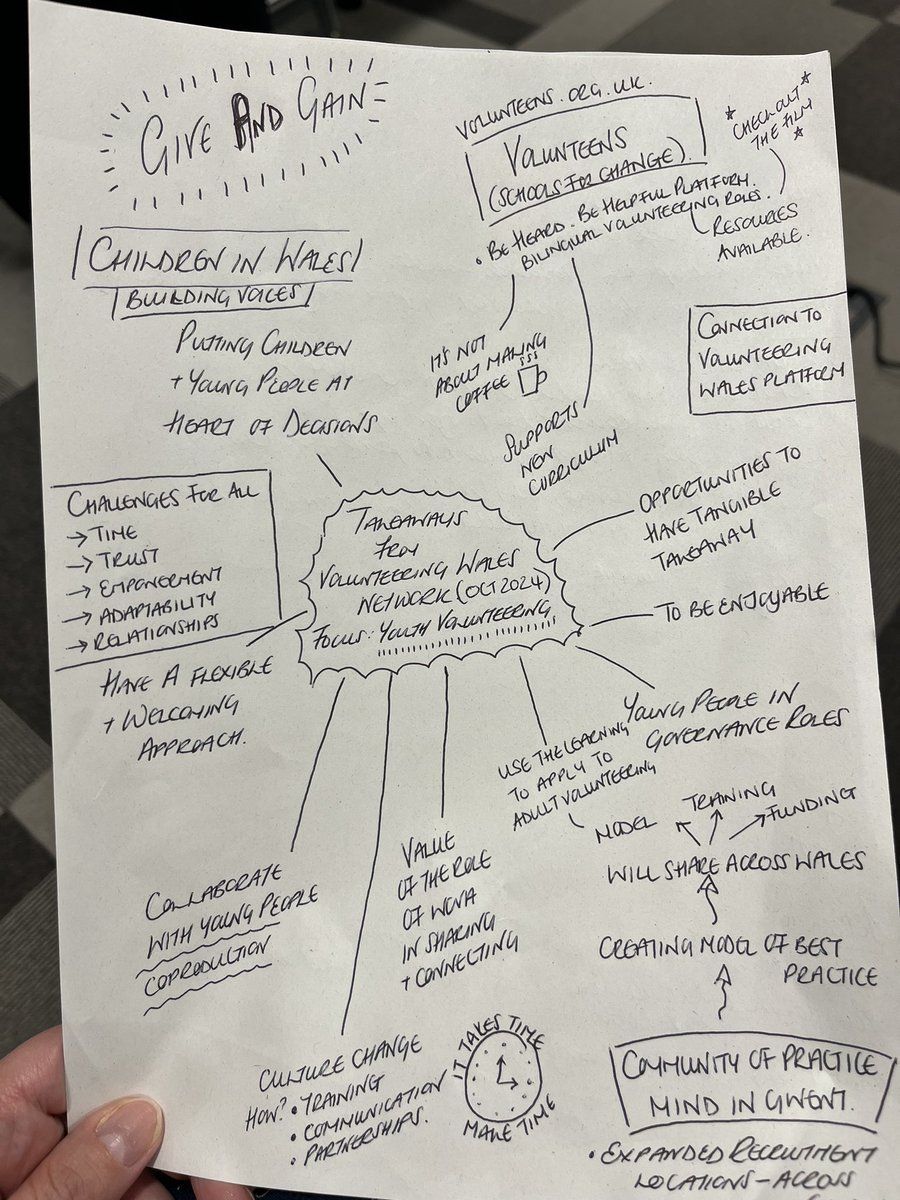 GIVE AND GAIN
VOLUNTEENS.ORG.UK.
VOLUNTEENS
(SCHOOLS FOR CHANGE).
CHECK OUT
THE FILM
• BE HEARD. BE HELPFUL PLATFORM.
BILINGUAL VOLUNTEERING ROLES.
RESOURCES
AVAILABLE.
CHILDREN IN WALES
BUILDING VOICES
PUTTING CHILDREN
+ YOUNG PEOPLE AT
HEART OF DECISIONS
IT'S NOT
ABOUT MAKING
COFFEE
SUPPORTS
NEW
CURRICULUM
CONNECTION TO
VOLUNTEERING
WALES PLATFORM
CHALLENGES FOR ALL
→ TIME
→ TRUST
→ EMPOWERMENT
→ ADAPTABILITY
→ RELATIONSHIPS
TAKEAWAYS
FROM
VOLUNTEERING WALES
NETWORK (OCT 2024)
FOCUS: YOUTH VOLUNTEERING
OPPORTUNITIES TO
HAVE TANGIBLE
TAKEAWAY
TO BE ENJOYABLE
HAVE A FLEXIBLE
+ WELCOMING
APPROACH.
YOUNG PEOPLE IN
GOVERNANCE ROLES
USE THE LEARNING
TO APPLY TO
ADULT VOLUNTEERING
COLLABORATE
WITH YOUNG PEOPLE
COPRODUCTION
VALUE
OF THE ROLE
OF WCVA
IN SHARING
+ CONNECTING
MODEL
TRAINING
FUNDING
WILL SHARE ACROSS WALES
CREATING MODEL OF BEST
PRACTICE
COMMUNITY OF PRACTICE
MIND IN GWENT.
• EXPANDED RECRUITMENT
LOCATIONS – ACROSS
CULTURE CHANGE
HOW? • TRAINING
• COMMUNICATION
• PARTNERSHIPS.
IT TAKES TIME
MAKE TIME